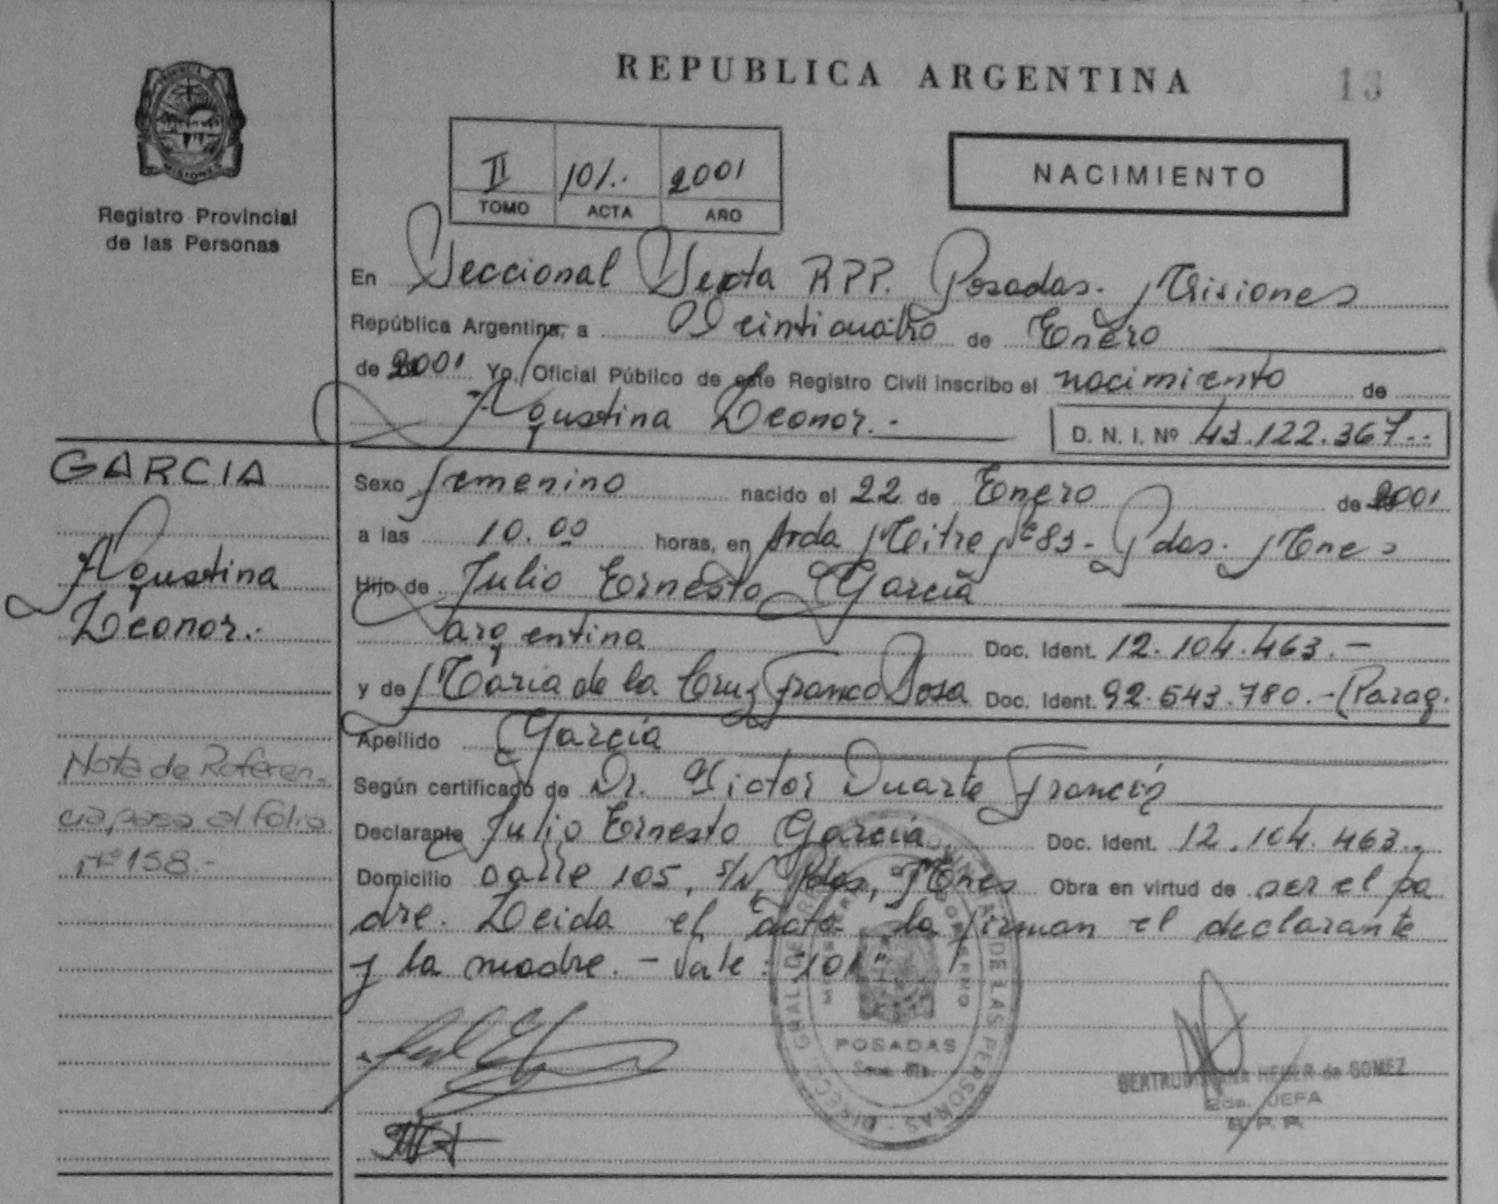 REPUBLICA ARGENTINA
13
PROVINCIA DE
MISIONES
Registro Provincial
de las Personas
II 101.- 2001
TOMO ACTA AÑO
NACIMIENTO
En Seccional Sexta RPP. Posadas - Misiones
República Argentina, a Veinticuatro de Enero
de 2001 Yo, Oficial Público de este Registro Civil inscribo el nacimiento de
Agustina Leonor.-
D. N. I. Nº 43.122.367.-
GARCIA
Agustina
Leonor.-
Sexo femenino nacido el 22 de Enero de 2001
a las 10.00 horas, en Avda Mitre Nº 83 - Pdas. Mnes
Hijo de Julio Ernesto García
argentina Doc. Ident. 12.104.463.-
y de Maria de la Cruz Franco Sosa Doc. Ident. 92.543.780.-(Parag.
Apellido García
Según certificado de Dr. Victor Duarte
Declarante Julio Ernesto García Doc. Ident. 12.104.463.-
Domicilio calle 105, s/N, Pdas, Mnes Obra en virtud de ser el pa
dre. Leida el acta la firman el declarante
y la madre. - Vale: "101"
Nota de Referen-
cia pasa al folio
Nº 158.-
DE LAS PERSONAS
POSADAS
HEUER de GOMEZ
2da. JEFA
R. P. P.